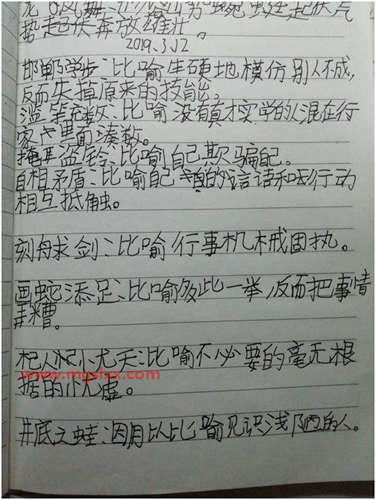 势起伏奔放雄壮。
2019.3.12
邯郸学步:比喻生硬地模仿别人不成,
反而失掉原来的技能。
滥竽充数:比喻没有真才实学的人混在行
家里面凑数。
掩耳盗铃:比喻自己欺骗自己。
自相矛盾:比喻自己的言语和行动
相互抵触。
刻舟求剑:比喻行事机械固执。
画蛇添足:比喻多此一举,反而把事情
弄糟。
杞人忧天:比喻不必要的毫无根
www.mgshx.com
据的忧虑。
井底之蛙:因用以比喻见识浅陋的人。